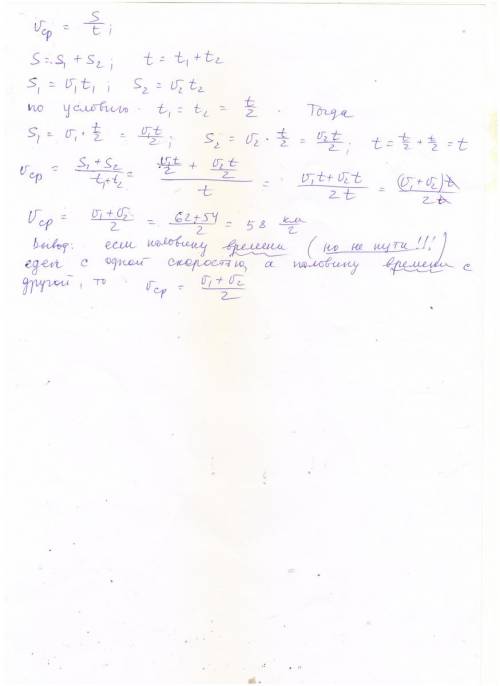 υср = S/t;
S = S₁ + S₂; t = t₁ + t₂
S₁ = υ₁t₁; S₂ = υ₂t₂
по условию t₁ = t₂ = t/2. Тогда
S₁ = υ₁ · t/2 = υ₁t/2; S₂ = υ₂ · t/2 = υ₂t/2; t = t/2 + t/2 = t
υср = (S₁ + S₂)/(t₁ + t₂) = (υ₁t/2 + υ₂t/2)/t = (υ₁t + υ₂t)/2t = (υ₁ + υ₂)t/2t
υср = (υ₁ + υ₂)/2 = (62 + 54)/2 = 58 км/ч
Вывод: если половину времени (но не пути!!!)
едем с одной скоростью, а половину времени с
другой, то υср = (υ₁ + υ₂)/2